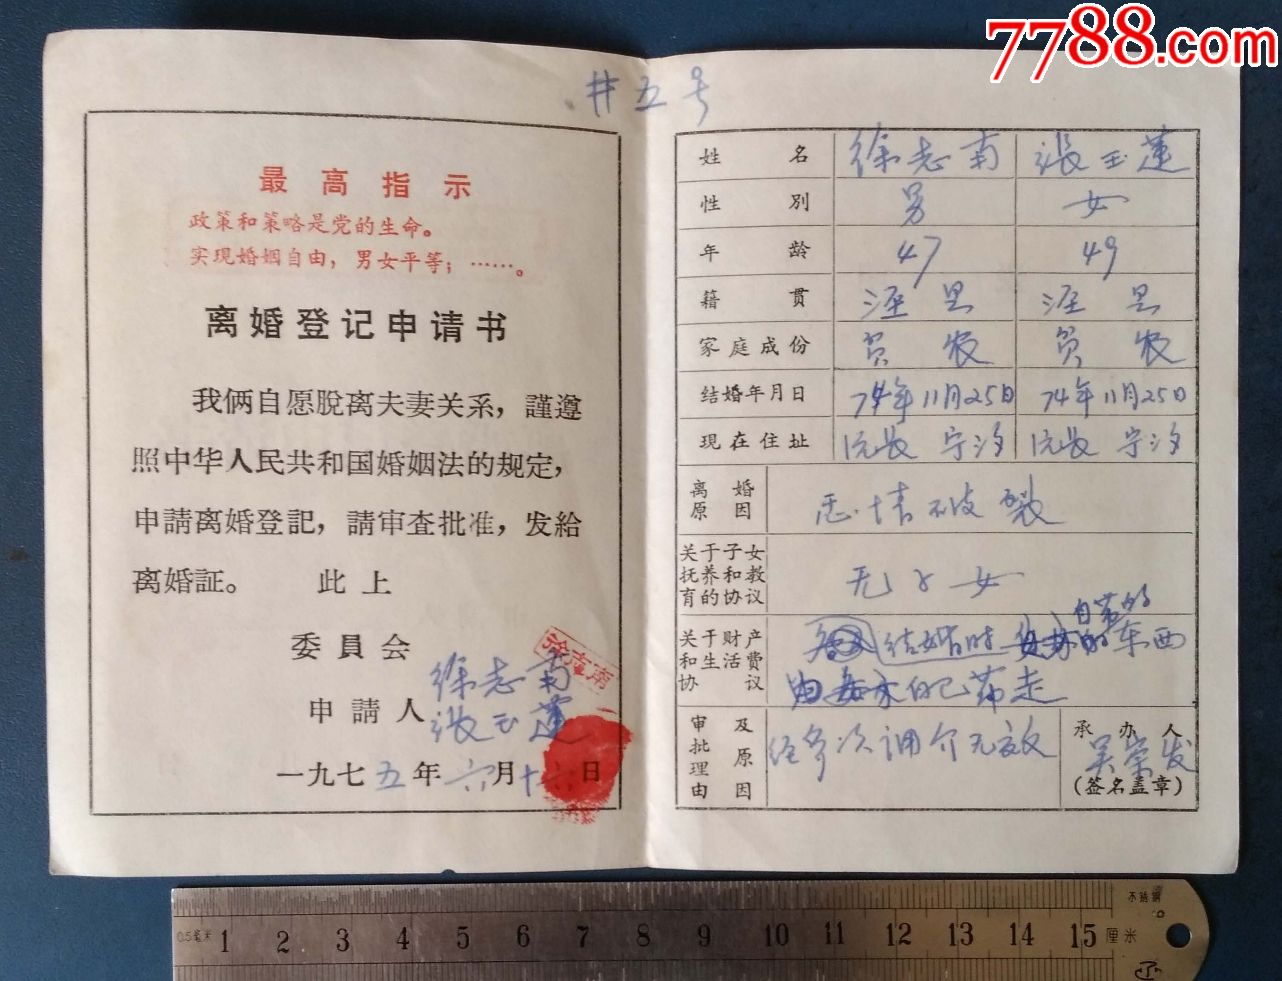 7788.com
廿五号
最高指示
政策和策略是党的生命。
实现婚姻自由，男女平等；……。
离婚登记申请书
我俩自愿脱离夫妻关系，謹遵
照中华人民共和国婚姻法的规定，
申請离婚登記，請审查批准，发給
离婚証。 此上
委員会
徐志南
申請人 張玉莲
徐志南
一九七五年六月十六日
姓名 徐志南 張玉莲
性別 男 女
年龄 47 49
籍贯 泾县 泾县
家庭成份 贫农 贫农
结婚年月日 74年11月25日 74年11月25日
现在住址 宁汐 宁汐
离婚原因 感情破裂
关于子女
抚养和教
育的协议 无子女
关于财产
和生活费
协议 结婚时 自带的东西
自己带走
审批理由及原因 经多次调介无效
承办人
吴荣发
(签名盖章)
不锈钢
0.5毫米 1 2 3 4 5 6 7 8 9 10 11 12 13 14 15 厘米